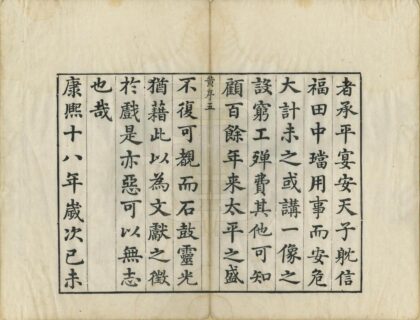 者承平宴安天子耽信
福田中璫用事而安危
大計未之或講一像之
設窮工殫費其他可知
顧百餘年来太平之盛
五
不復可覩而石鼓靈光
猶藉此以為文獻之徵
於戲是亦惡可以無志
也哉
康熙十八年歲次己未